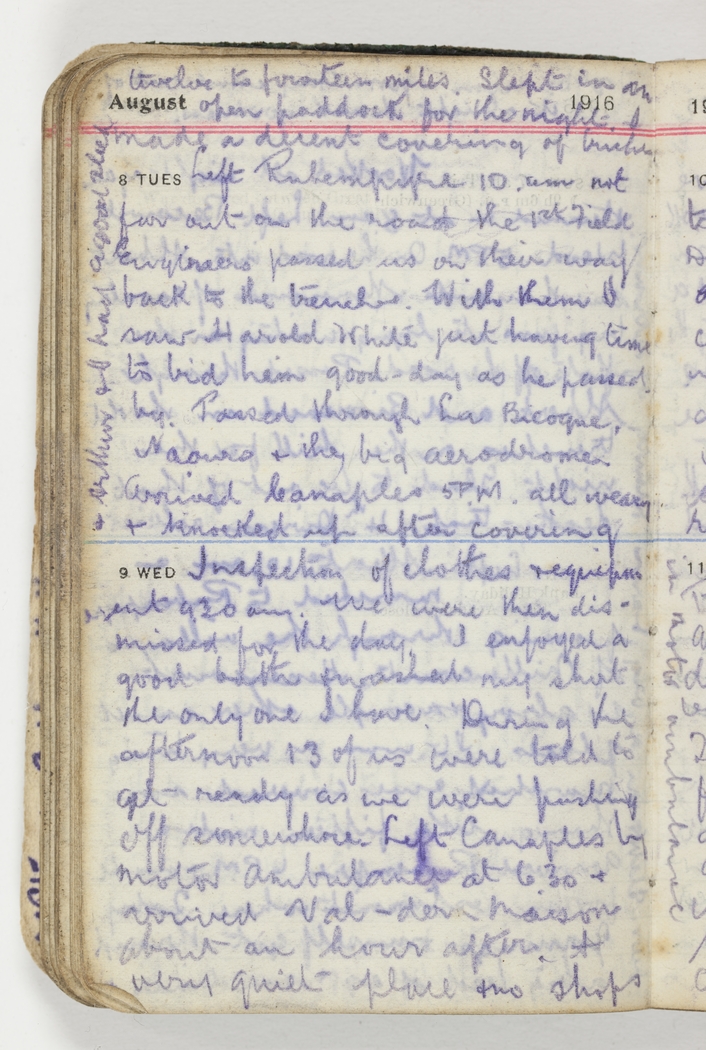 twelve to fourteen miles. Slept in an
August open paddock for the night. I 1916
made a decent covering of
8 TUES Left Rubempre 10. am not
far out on the road the 1st Field
Engineers passed us on their way
back to the trenches. With them I
saw Harold White just having time
to bid him good-day as he passed
by. Passed through La Bicoque,
Naours + the big aerodromes
Arrived Canaples 5P.M. all weary
+ knocked up after covering
+ Arthur & I had a good
9 WED Inspection of clothes + equipm
ent 930 am. We were then dis-
missed for the day. I enjoyed a
good bath + washed my shirt
the only one I have. During the
afternoon 13 of us were told to
get ready as we were pushing
off somewhere. Left Canaples by
motor Ambulance at 6.30 +
arrived Val-der Maison
about an hour after. A
very quiet place + no shops
19
10
11
in motor ambulance